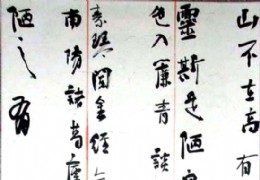 山不在高有
靈斯是陋室
色入簾青談
素琴閱金經無
南陽諸葛廬
陋之有